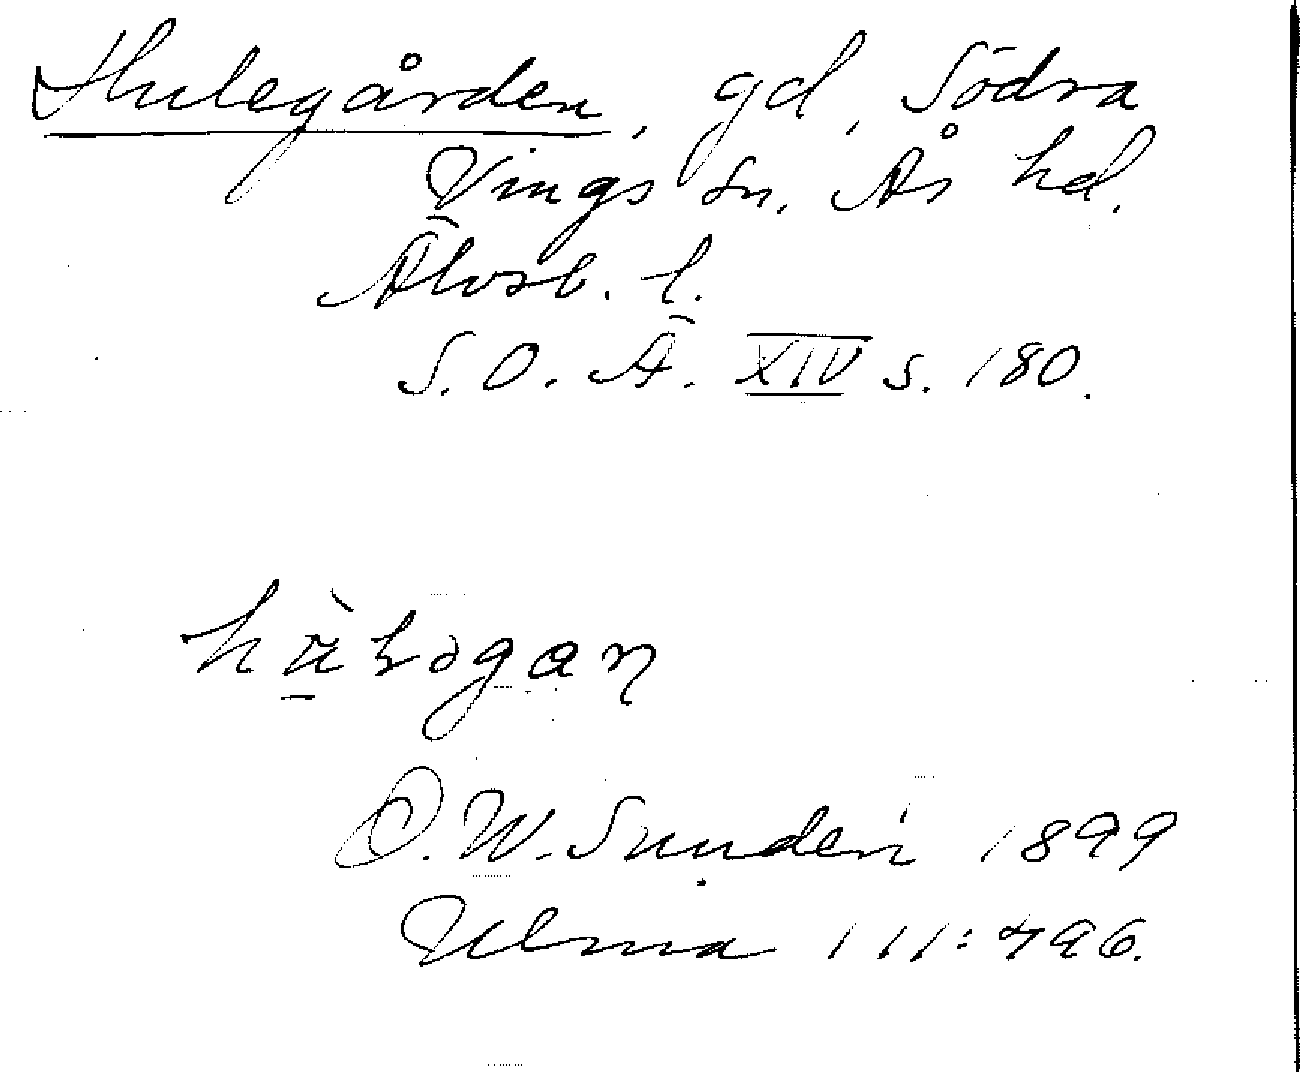 Hulegården, gd, Södra
Vings sn. Ås hd.
Älvsb. l.
S. O. Ä. XIV s. 180.
O. W. Sundén 1899
Ulma 111:496.